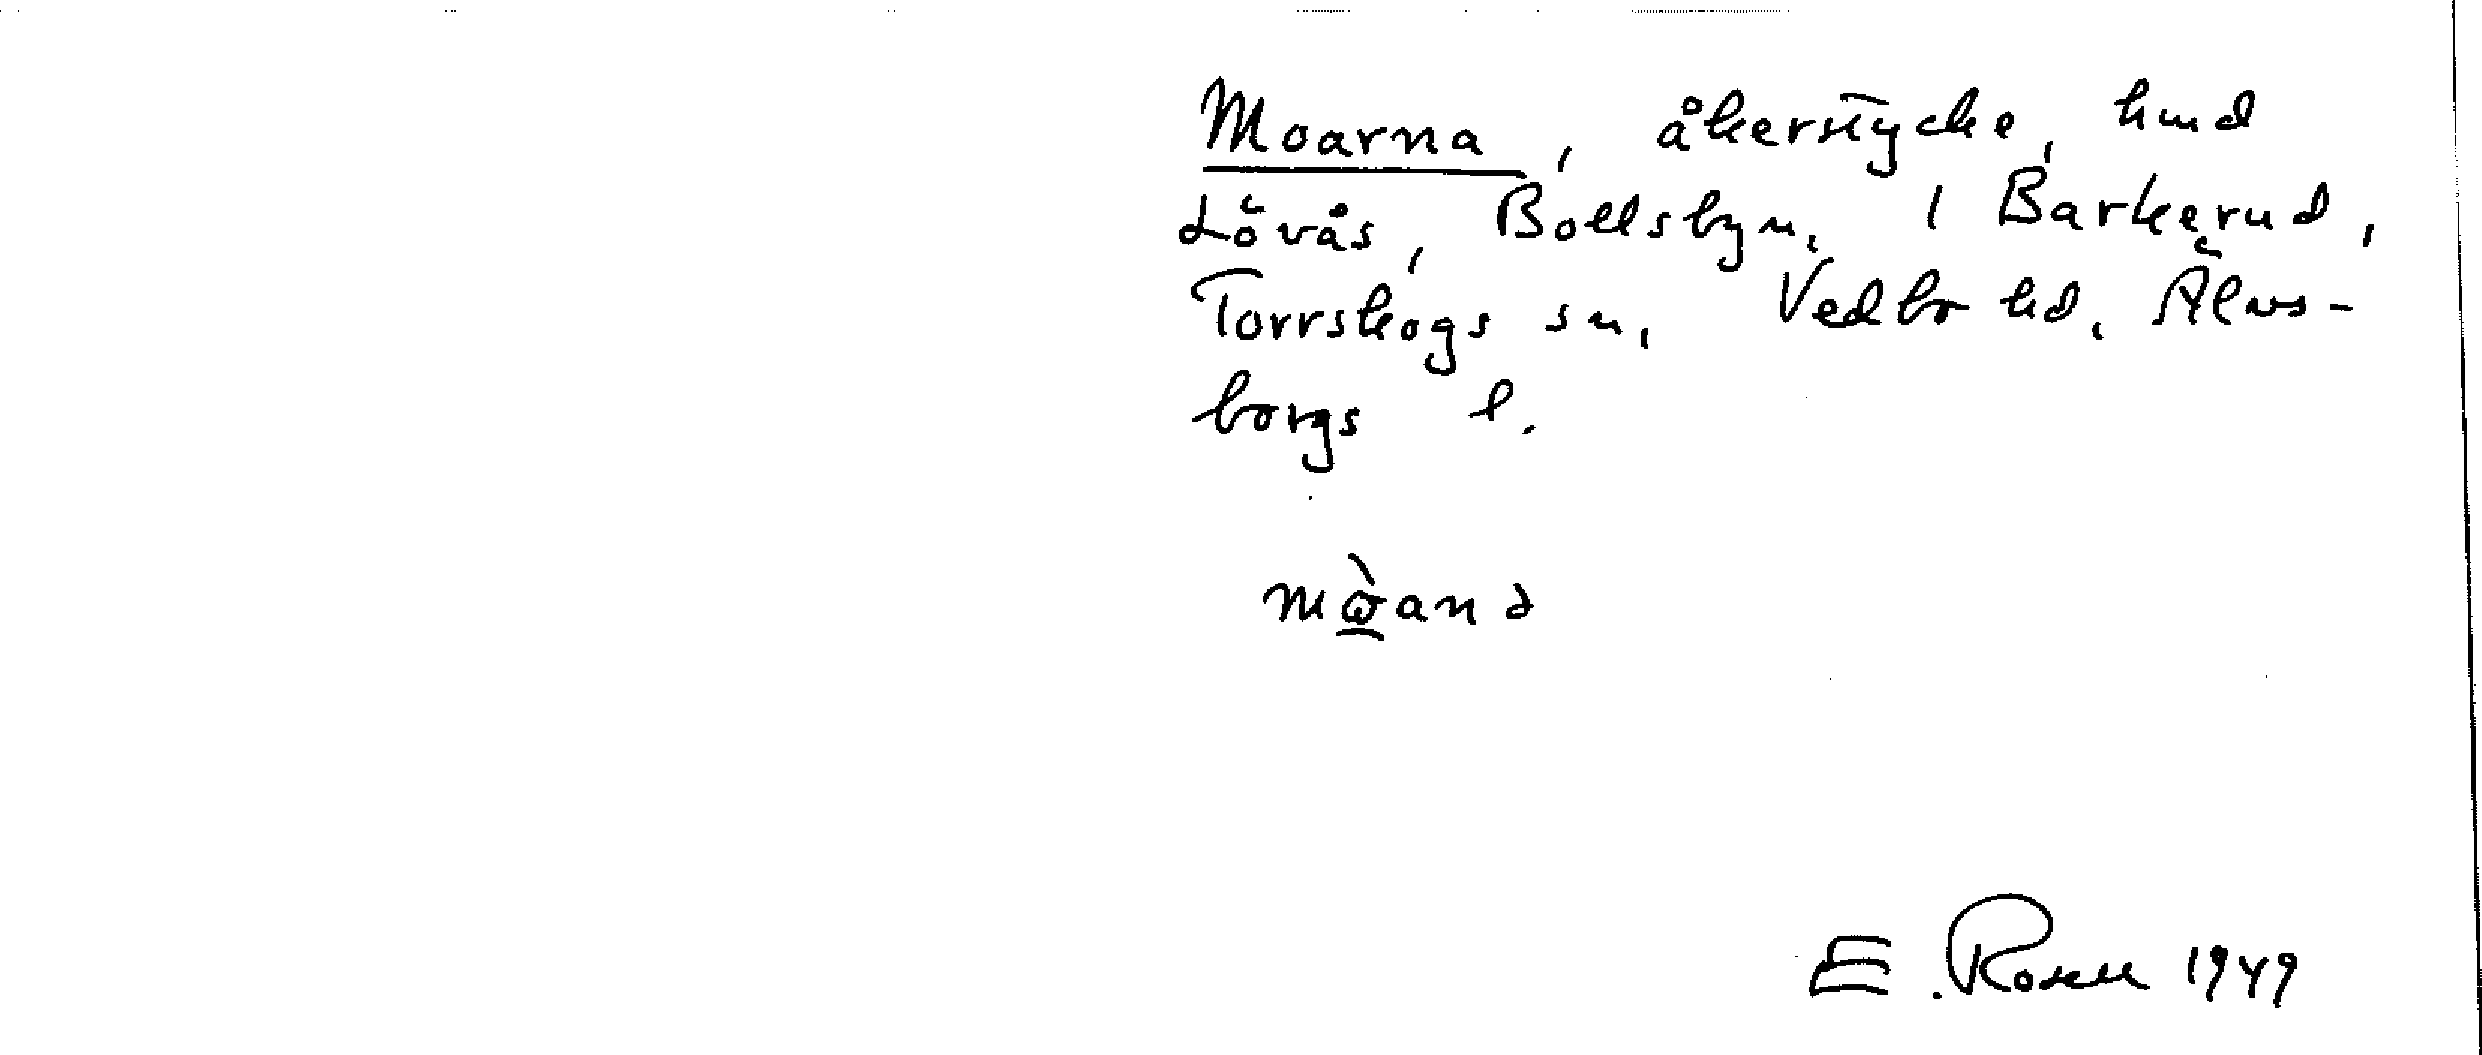 Moarna, åkerstycke, hmd
Lövås, Bollsbyn, 1 Barkerud,
Torrskogs sn, Vedbo hd, Älvs-
borgs l.
E. Rosell 1949